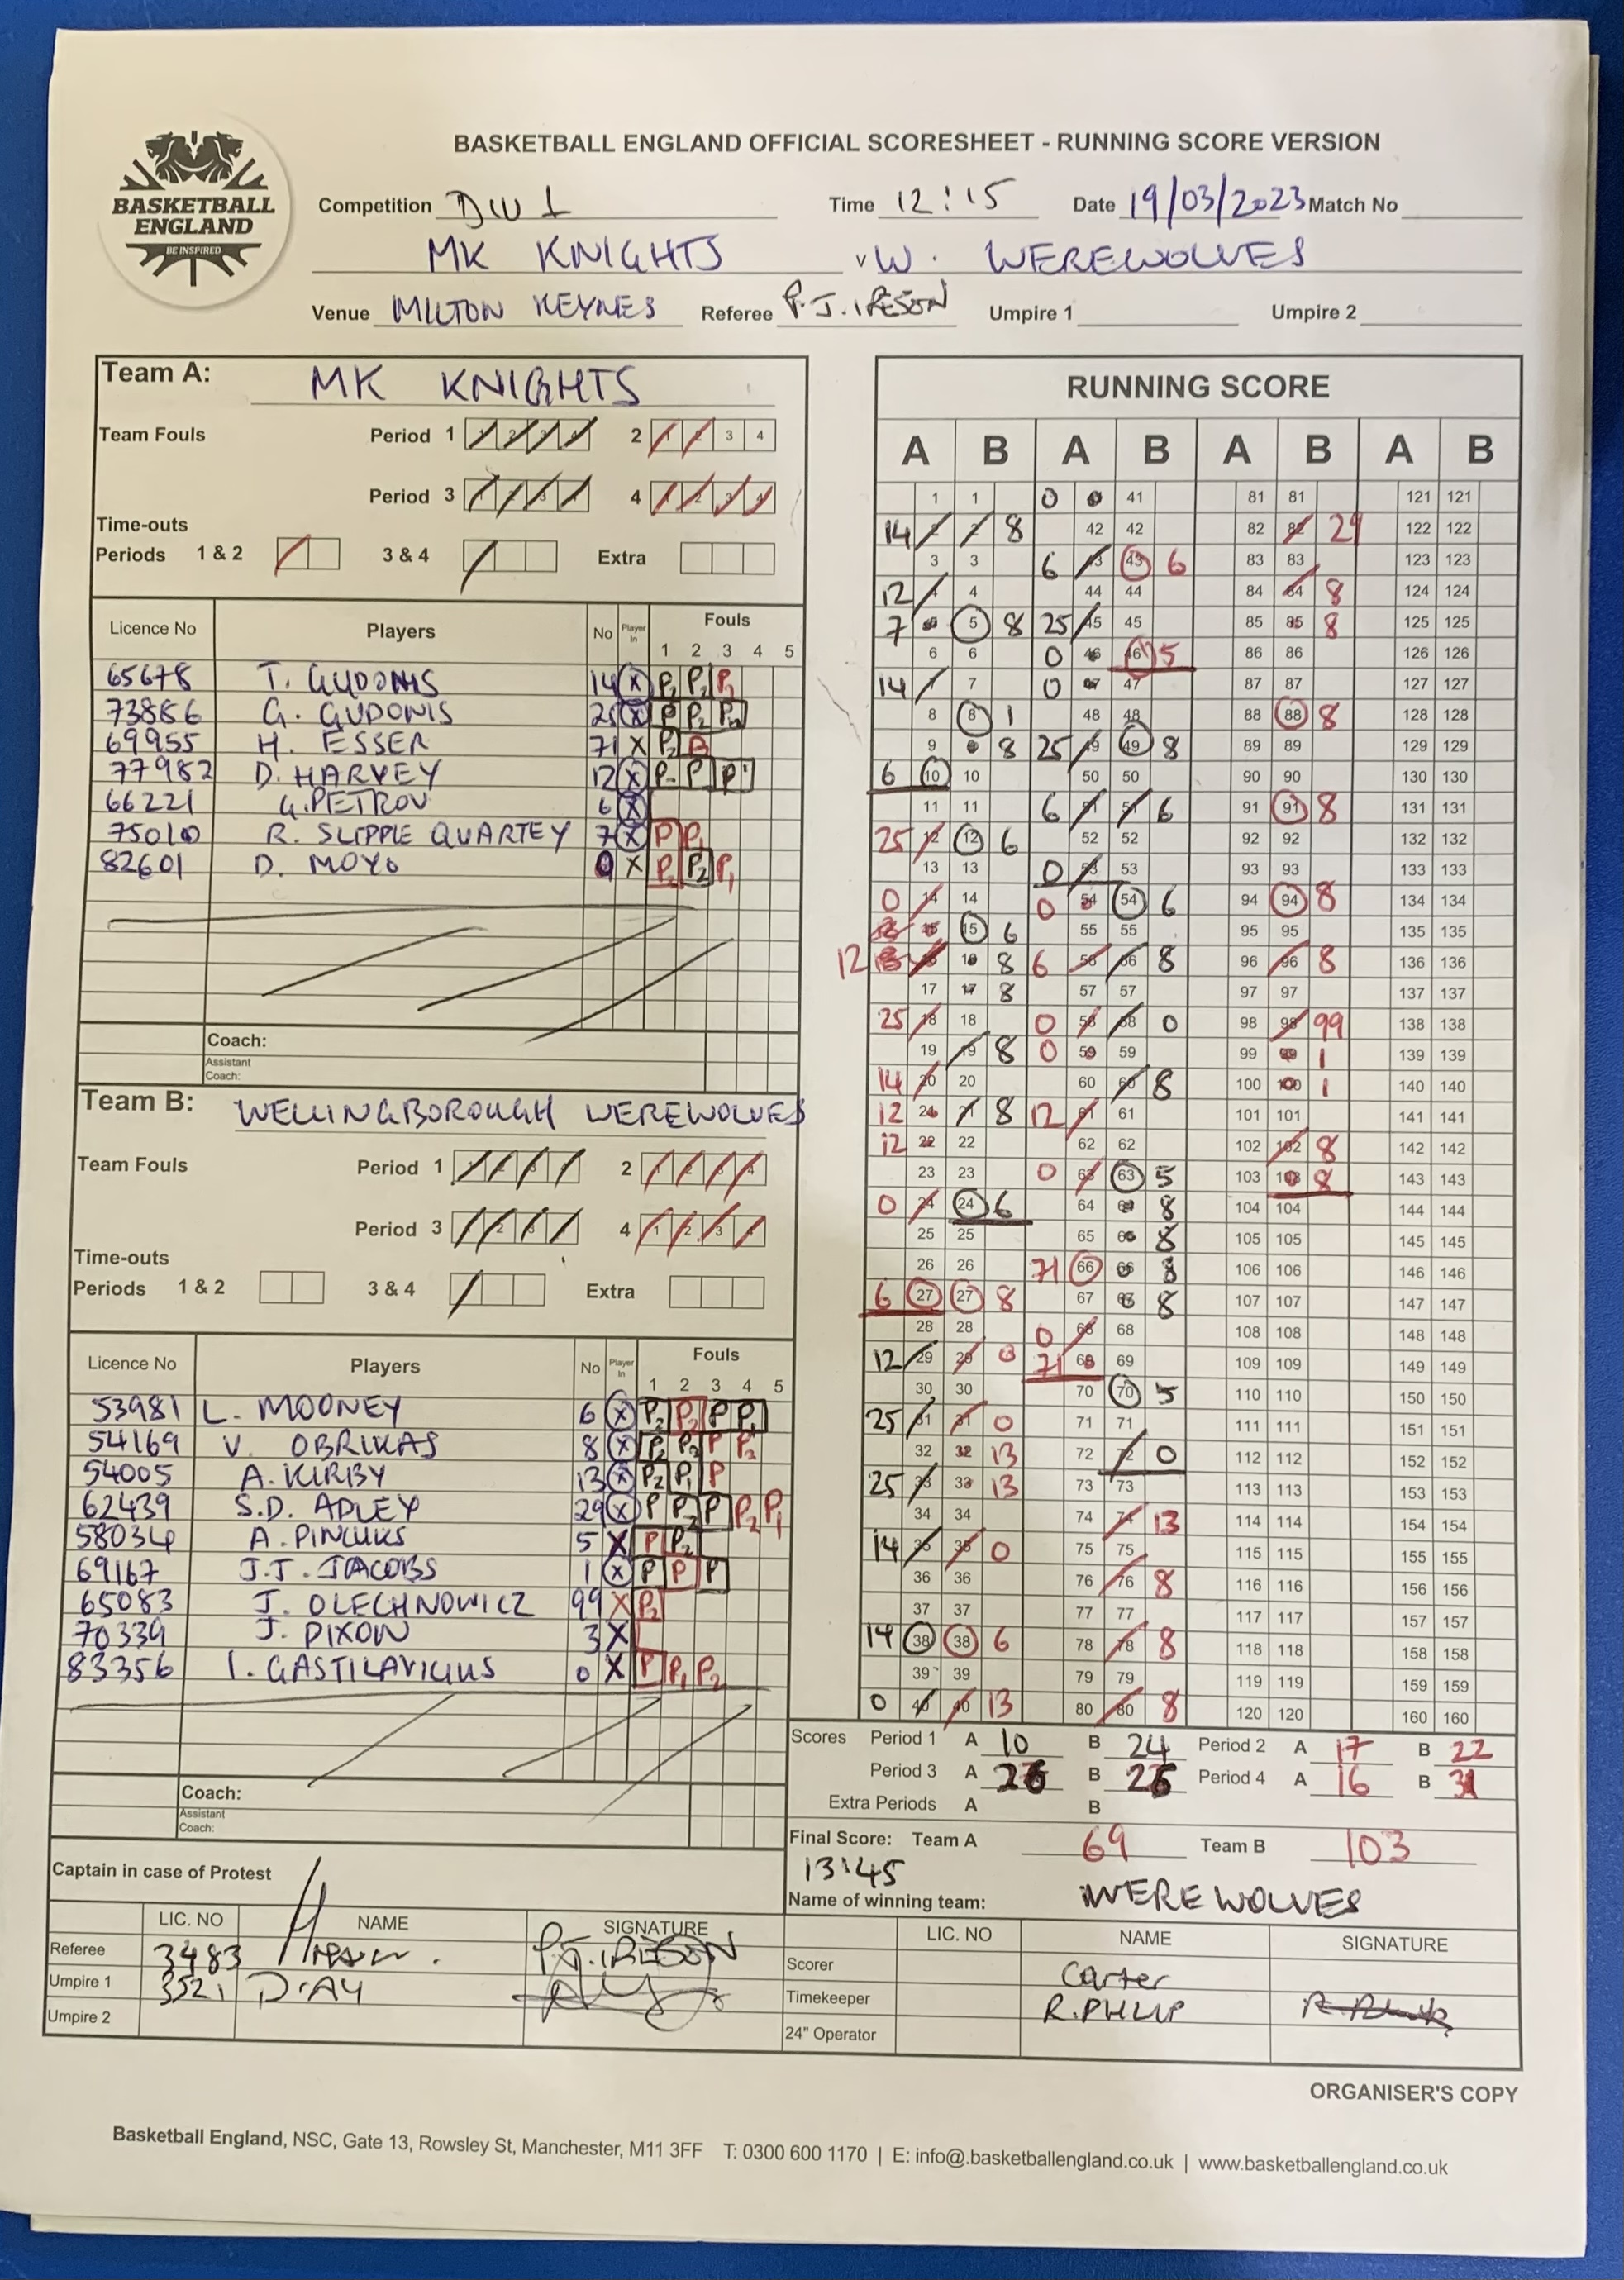 BASKETBALL ENGLAND OFFICIAL SCORESHEET - RUNNING SCORE VERSION
BASKETBALL
ENGLAND
BE INSPIRED
Competition DIV 1 Time 12:15 Date 19/03/2023 Match No
MK KNIGHTS v W. WEREWOLVES
Venue MILTON KEYNES Referee P.J. IRESON Umpire 1 Umpire 2
Team A: MK KNIGHTS
Team Fouls Period 1 1 2 3 4 2 1 2 3 4
Period 3 1 2 3 4 4 1 2 3 4
Time-outs
Periods 1 & 2 3 & 4 Extra
Licence No Players No Player In Fouls
1 2 3 4 5
65678 T. GUDONIS 14 X P2 P2 P1
73886 G. GUDONIS 25 X P P2 P2
69955 H. ESSER 71 X P2
77982 D. HARVEY 12 X P P P1
66221 G. PETROV 6 X
75010 R. SLIPPLE QUARTEY 7 X P P1
82601 D. MOYO 0 X P2 P2 P1
Coach:
Assistant
Coach:
Team B: WELLINGBOROUGH WEREWOLVES
Team Fouls Period 1 1 2 3 4 2 1 2 3 4
Period 3 1 2 3 4 4 1 2 3 4
Time-outs
Periods 1 & 2 3 & 4 Extra
Licence No Players No Player In Fouls
1 2 3 4 5
53981 L. MOONEY 6 X P2 P2 P P1
54169 V. OBRIKAS 8 X P2 P2 P P2
54005 A. KIRBY 13 X P2 P1 P
62439 S.D. ADLEY 29 X P P2 P P2 P1
58034 A. PINCUKS 5 X P P2
69167 J.J. JACOBS 1 X P P P
65083 J. OLECHNOWICZ 99 X P2
70339 J. DIXON 3 X
83356 I. GASTILAVICIUS 0 X P P1 P2
Coach:
Assistant
Coach:
Captain in case of Protest
LIC. NO NAME SIGNATURE
Referee 3483 P.J. IRESON
Umpire 1 3521 D. AY
Umpire 2
RUNNING SCORE
A B A B A B A B
1 1 0 41 81 81 121 121
14 2 2 8 42 42 82 82 29 122 122
3 3 6 43 43 6 83 83 123 123
12 4 4 44 44 84 84 8 124 124
7 5 5 8 25 45 45 85 85 8 125 125
6 6 0 46 46 5 86 86 126 126
14 7 7 0 47 47 87 87 127 127
8 8 1 48 48 88 88 8 128 128
9 9 8 25 49 49 8 89 89 129 129
6 10 10 50 50 90 90 130 130
11 11 6 51 51 6 91 91 8 131 131
25 12 12 6 52 52 92 92 132 132
13 13 0 53 53 93 93 133 133
0 14 14 0 54 54 6 94 94 8 134 134
15 15 6 55 55 95 95 135 135
12 16 16 8 6 56 56 8 96 96 8 136 136
17 17 8 57 57 97 97 137 137
25 18 18 0 58 58 0 98 98 99 138 138
19 19 8 0 59 59 99 99 1 139 139
14 20 20 60 60 8 100 100 1 140 140
12 21 21 8 12 61 61 101 101 141 141
12 22 22 62 62 102 102 8 142 142
23 23 0 63 63 5 103 103 8 143 143
0 24 24 6 64 64 8 104 104 144 144
25 25 65 65 8 105 105 145 145
26 26 71 66 66 8 106 106 146 146
6 27 27 8 67 67 8 107 107 147 147
28 28 0 68 68 108 108 148 148
12 29 29 0 71 69 69 109 109 149 149
30 30 70 70 5 110 110 150 150
25 31 31 0 71 71 111 111 151 151
32 32 13 72 72 0 112 112 152 152
25 33 33 13 73 73 113 113 153 153
34 34 74 74 13 114 114 154 154
14 35 35 0 75 75 115 115 155 155
36 36 76 76 8 116 116 156 156
37 37 77 77 117 117 157 157
14 38 38 6 78 78 8 118 118 158 158
39 39 79 79 119 119 159 159
0 40 40 13 80 80 8 120 120 160 160
Scores Period 1 A 10 B 24 Period 2 A 17 B 22
Period 3 A 26 B 26 Period 4 A 16 B 31
Extra Periods A B
Final Score: Team A 69 Team B 103
13:45
Name of winning team: WEREWOLVES
LIC. NO NAME SIGNATURE
Scorer Carter
Timekeeper R.PHILIP
24" Operator
ORGANISER'S COPY
Basketball England, NSC, Gate 13, Rowsley St, Manchester, M11 3FF T: 0300 600 1170 | E: info@.basketballengland.co.uk | www.basketballengland.co.uk